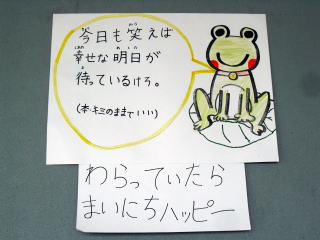 今日も笑えは
幸せな明日が
待っているけろ。
(本・キミのままでいい)
わらっていたら
まいにちハッピー